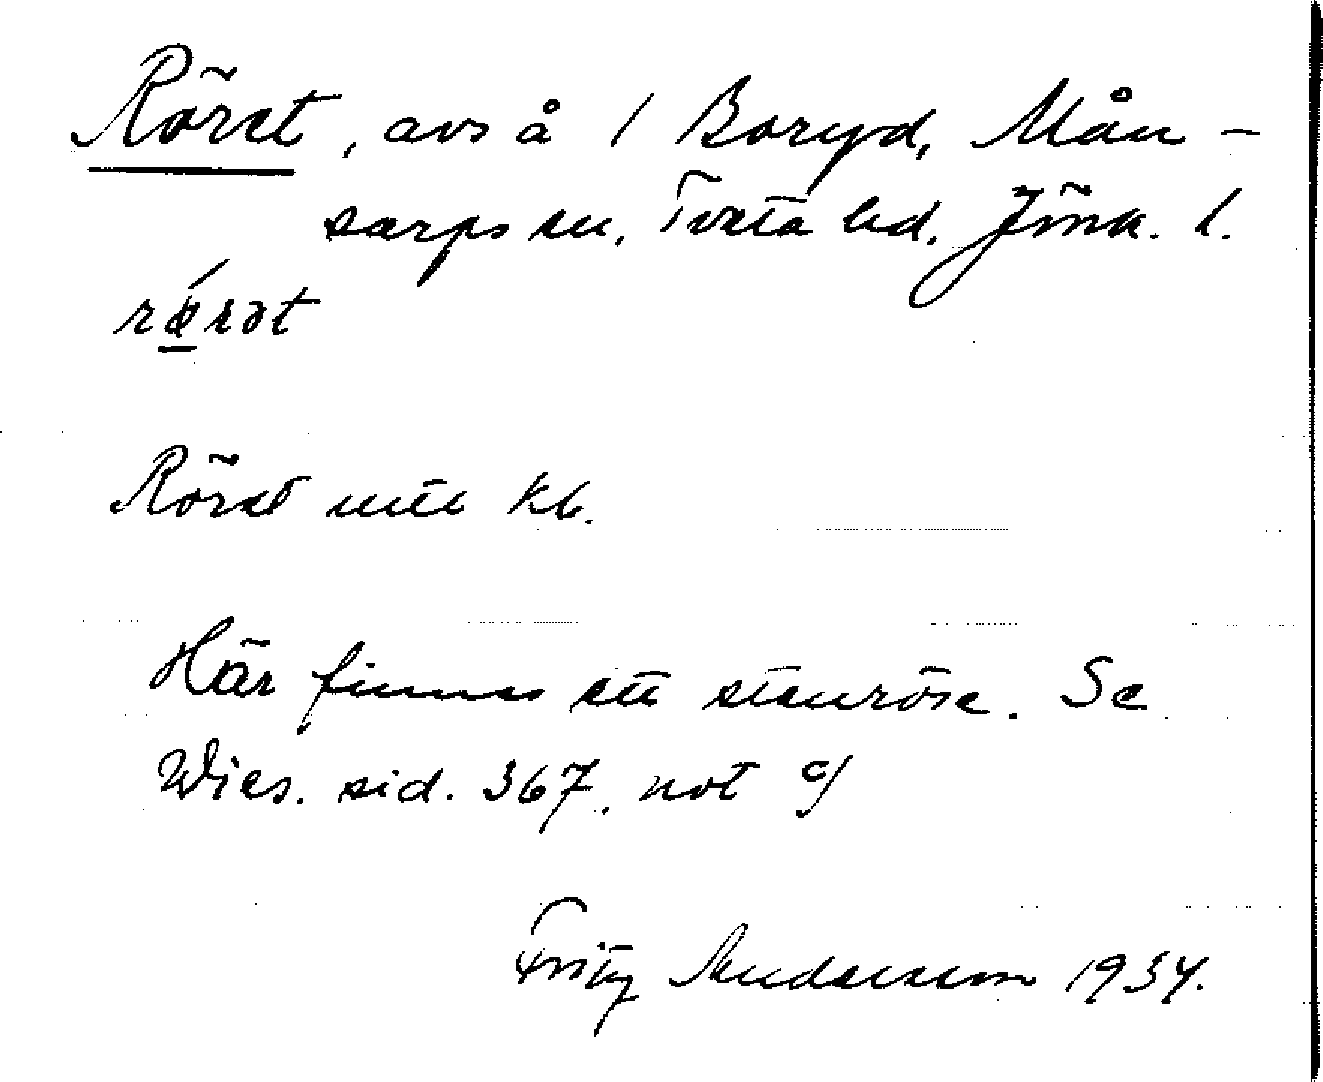 Röret, avs å 1 Boryd, Mån-
sarps sn, Tveta hd, Jönk. l.
Röret mtl kb.
Här finnes ett stenröse. Se
Wies. sid. 367, not c/
Fritz Andersson 1934.